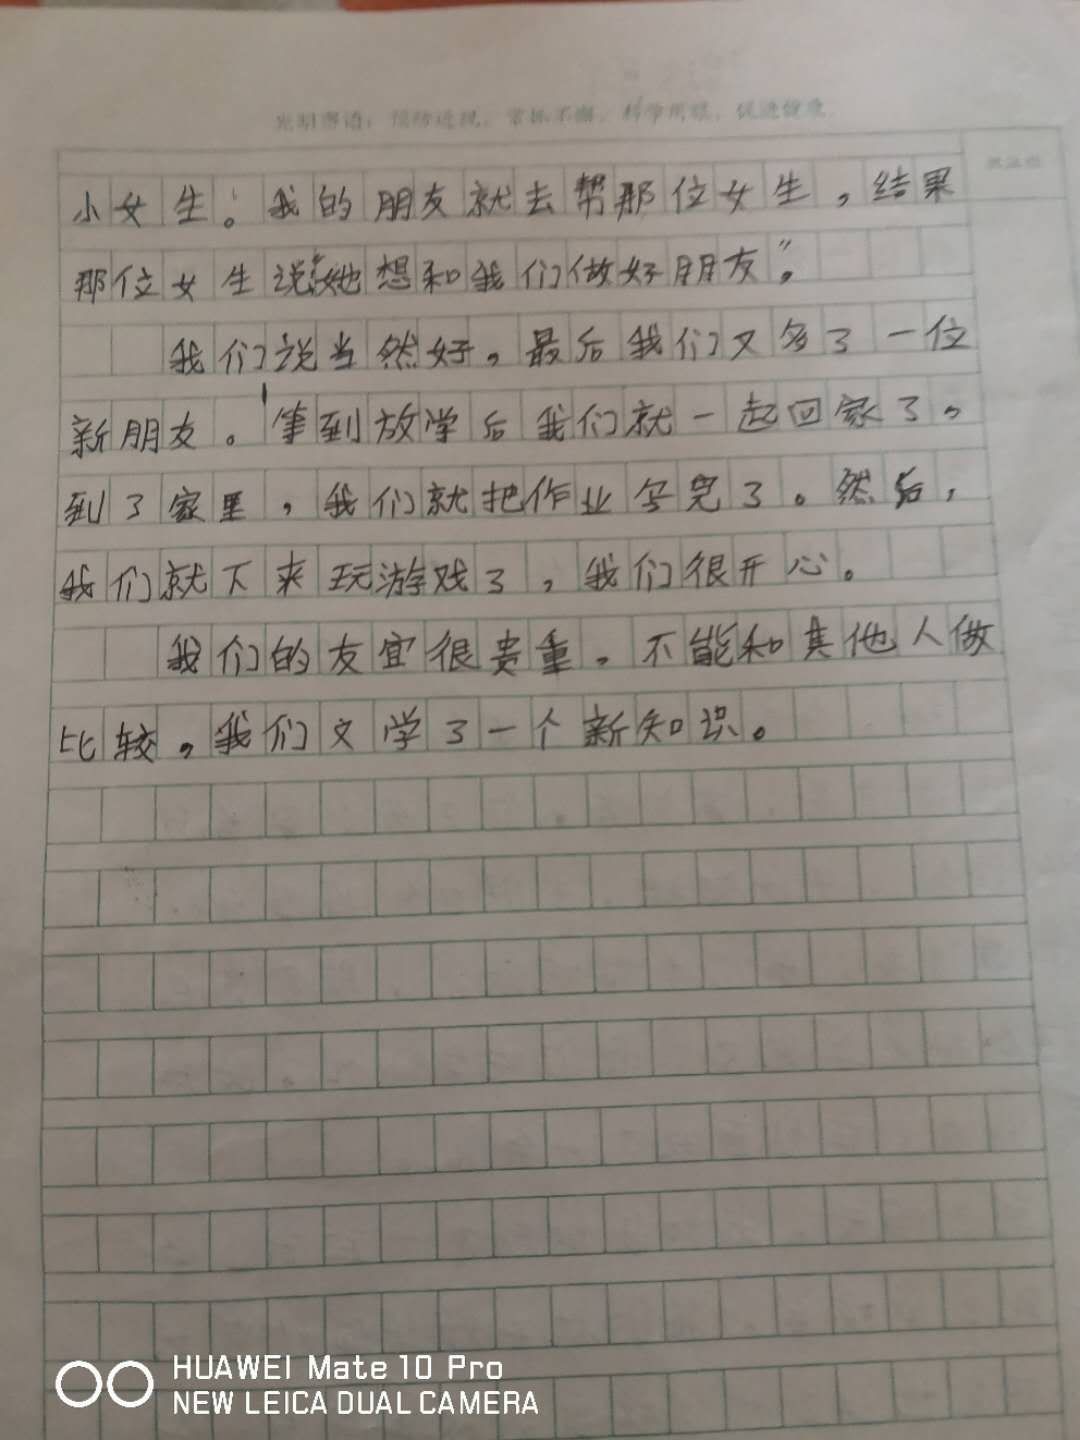 光明寄语：预防近视，常抓不懈，科学用眼，促进健康。
小女生。我的朋友就去帮那位女生，结果
那位女生说“她想和我们做好朋友”。
我们说当然好，最后我们又多了一位
新朋友。等到放学后我们就一起回家了。
到了家里，我们就把作业写完了。然后，
我们就下来玩游戏了，我们很开心。
我们的友宜很贵重，不能和其他人做
比较，我们又学了一个新知识。
HUAWEI Mate 10 Pro
NEW LEICA DUAL CAMERA